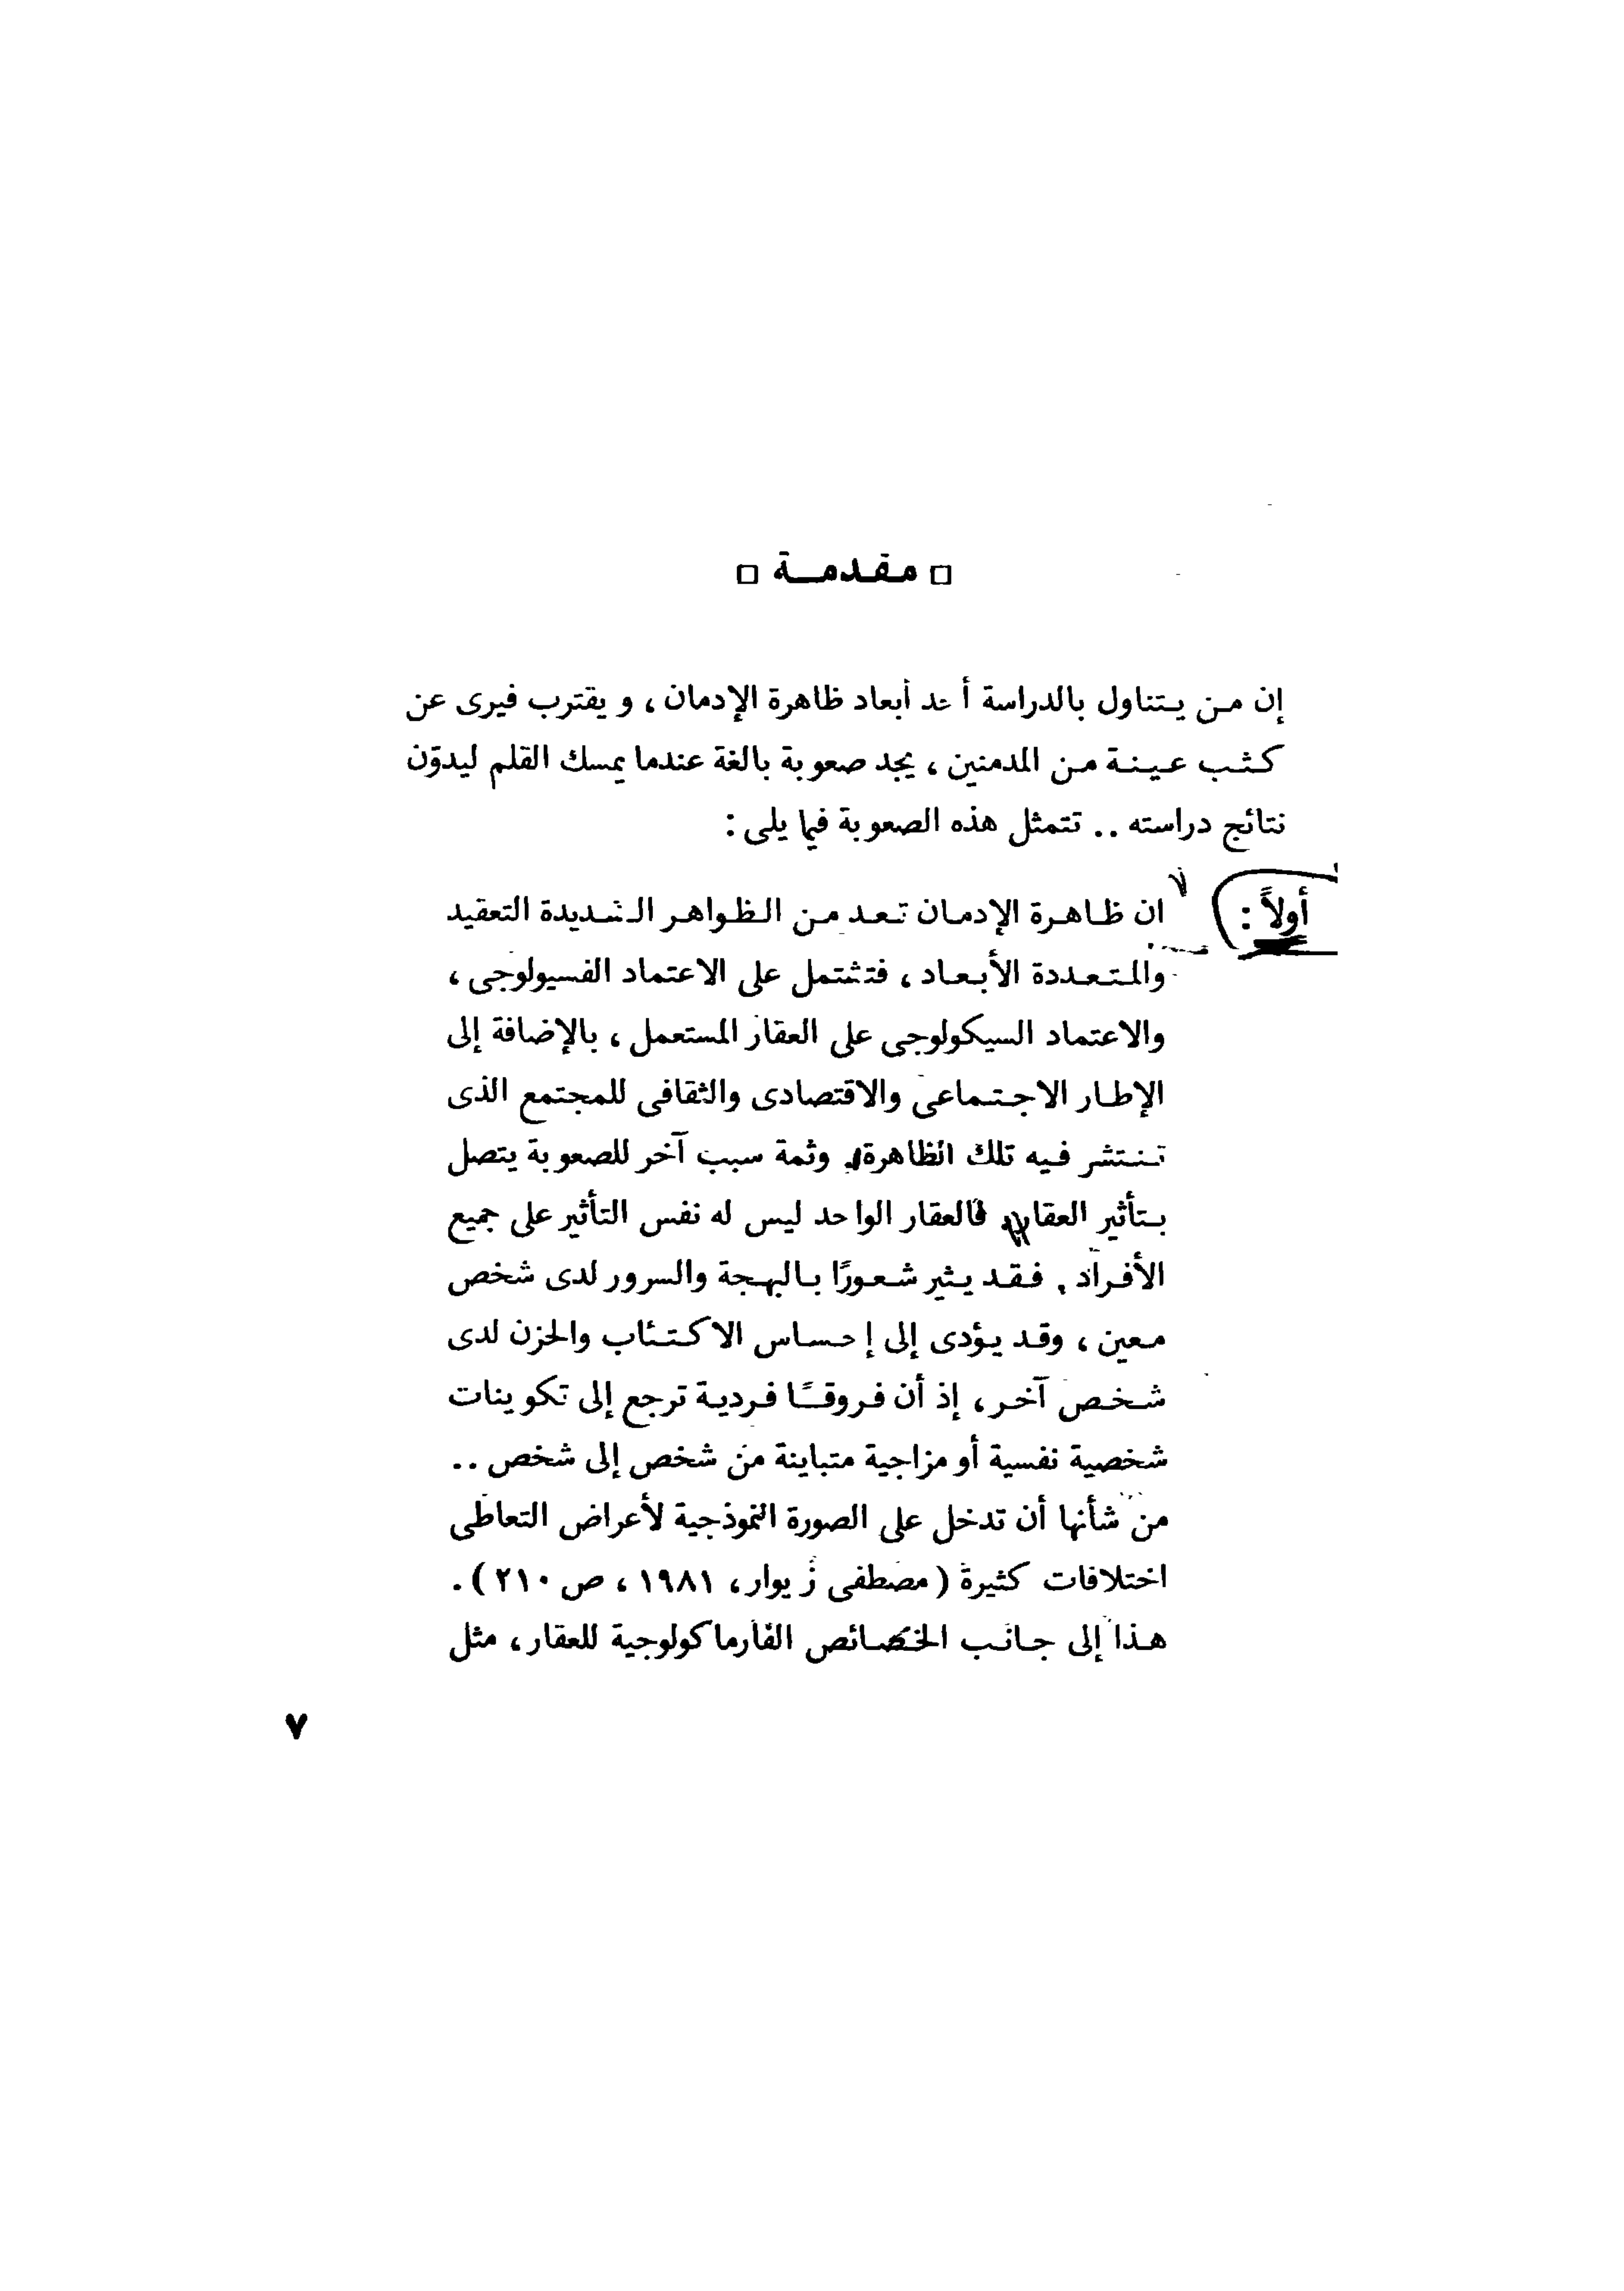 □ مقدمة □
إن من يتناول بالدراسة أحد أبعاد ظاهرة الإدمان ، ويقترب فيرى عن
كثب عينة من المدمنين ، يجد صعوبة بالغة عندما يمسك القلم ليدوّن
نتائج دراسته .. تتمثل هذه الصعوبة فيما يلى :
أولاً : ان ظاهرة الإدمان تعد من الظواهر الشديدة التعقيد
والمتعددة الأبعاد ، فتشتمل على الاعتماد الفسيولوجى ،
والاعتماد السيكولوجى على العقار المستعمل ، بالإضافة إلى
الإطار الاجتماعى والاقتصادى والثقافى للمجتمع الذى
تنتشر فيه تلك الظاهرة. وثمة سبب آخر للصعوبة يتصل
بتأثير العقار، فالعقار الواحد ليس له نفس التأثير على جميع
الأفراد , فقد يثير شعورًا بالبهجة والسرور لدى شخص
معين ، وقد يؤدى إلى إحساس الاكتئاب والحزن لدى
شخص آخر، إذ أن فروقًا فردية ترجع إلى تكوينات
شخصية نفسية أو مزاجية متباينة من شخص إلى شخص ..
من شأنها أن تدخل على الصورة النموذجية لأعراض التعاطى
اختلافات كثيرة ( مصطفى زيوار، ١٩٨١ ، ص ٢١٠ ) .
هذا إلى جانب الخصائص الفارماكولوجية للعقار، مثل
٧